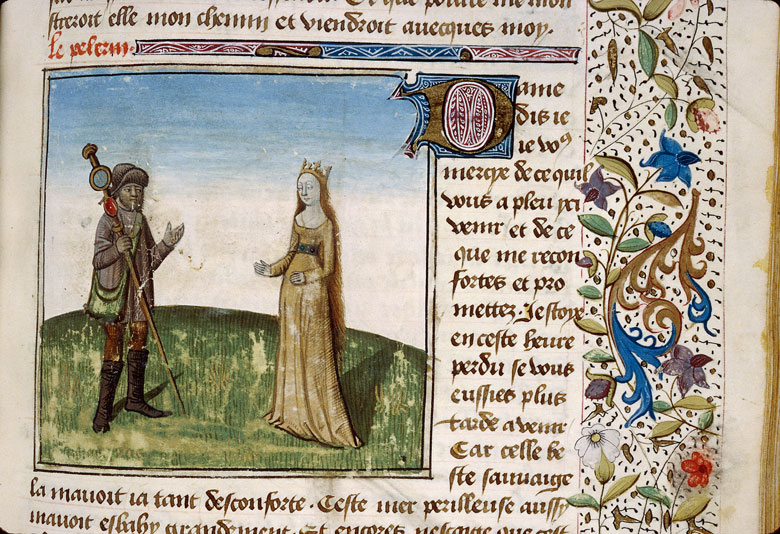 streroit elle mon chemin et viendroit avecques moy.
le pelerin.
Dame
dis ie
ie vo⁹
mercye de ce quil
vous a pleu
venir et de ce
que me recon
fortes et pro
mettez. Jestoye
en ceste heure
perdu se vous
eussies plus
tarde a venir
Car celle be
ste sauvaige
la mavoit ia tant desconforte. Ceste mer perilleuse aussy
mavoit esbahy grandement. Et encores